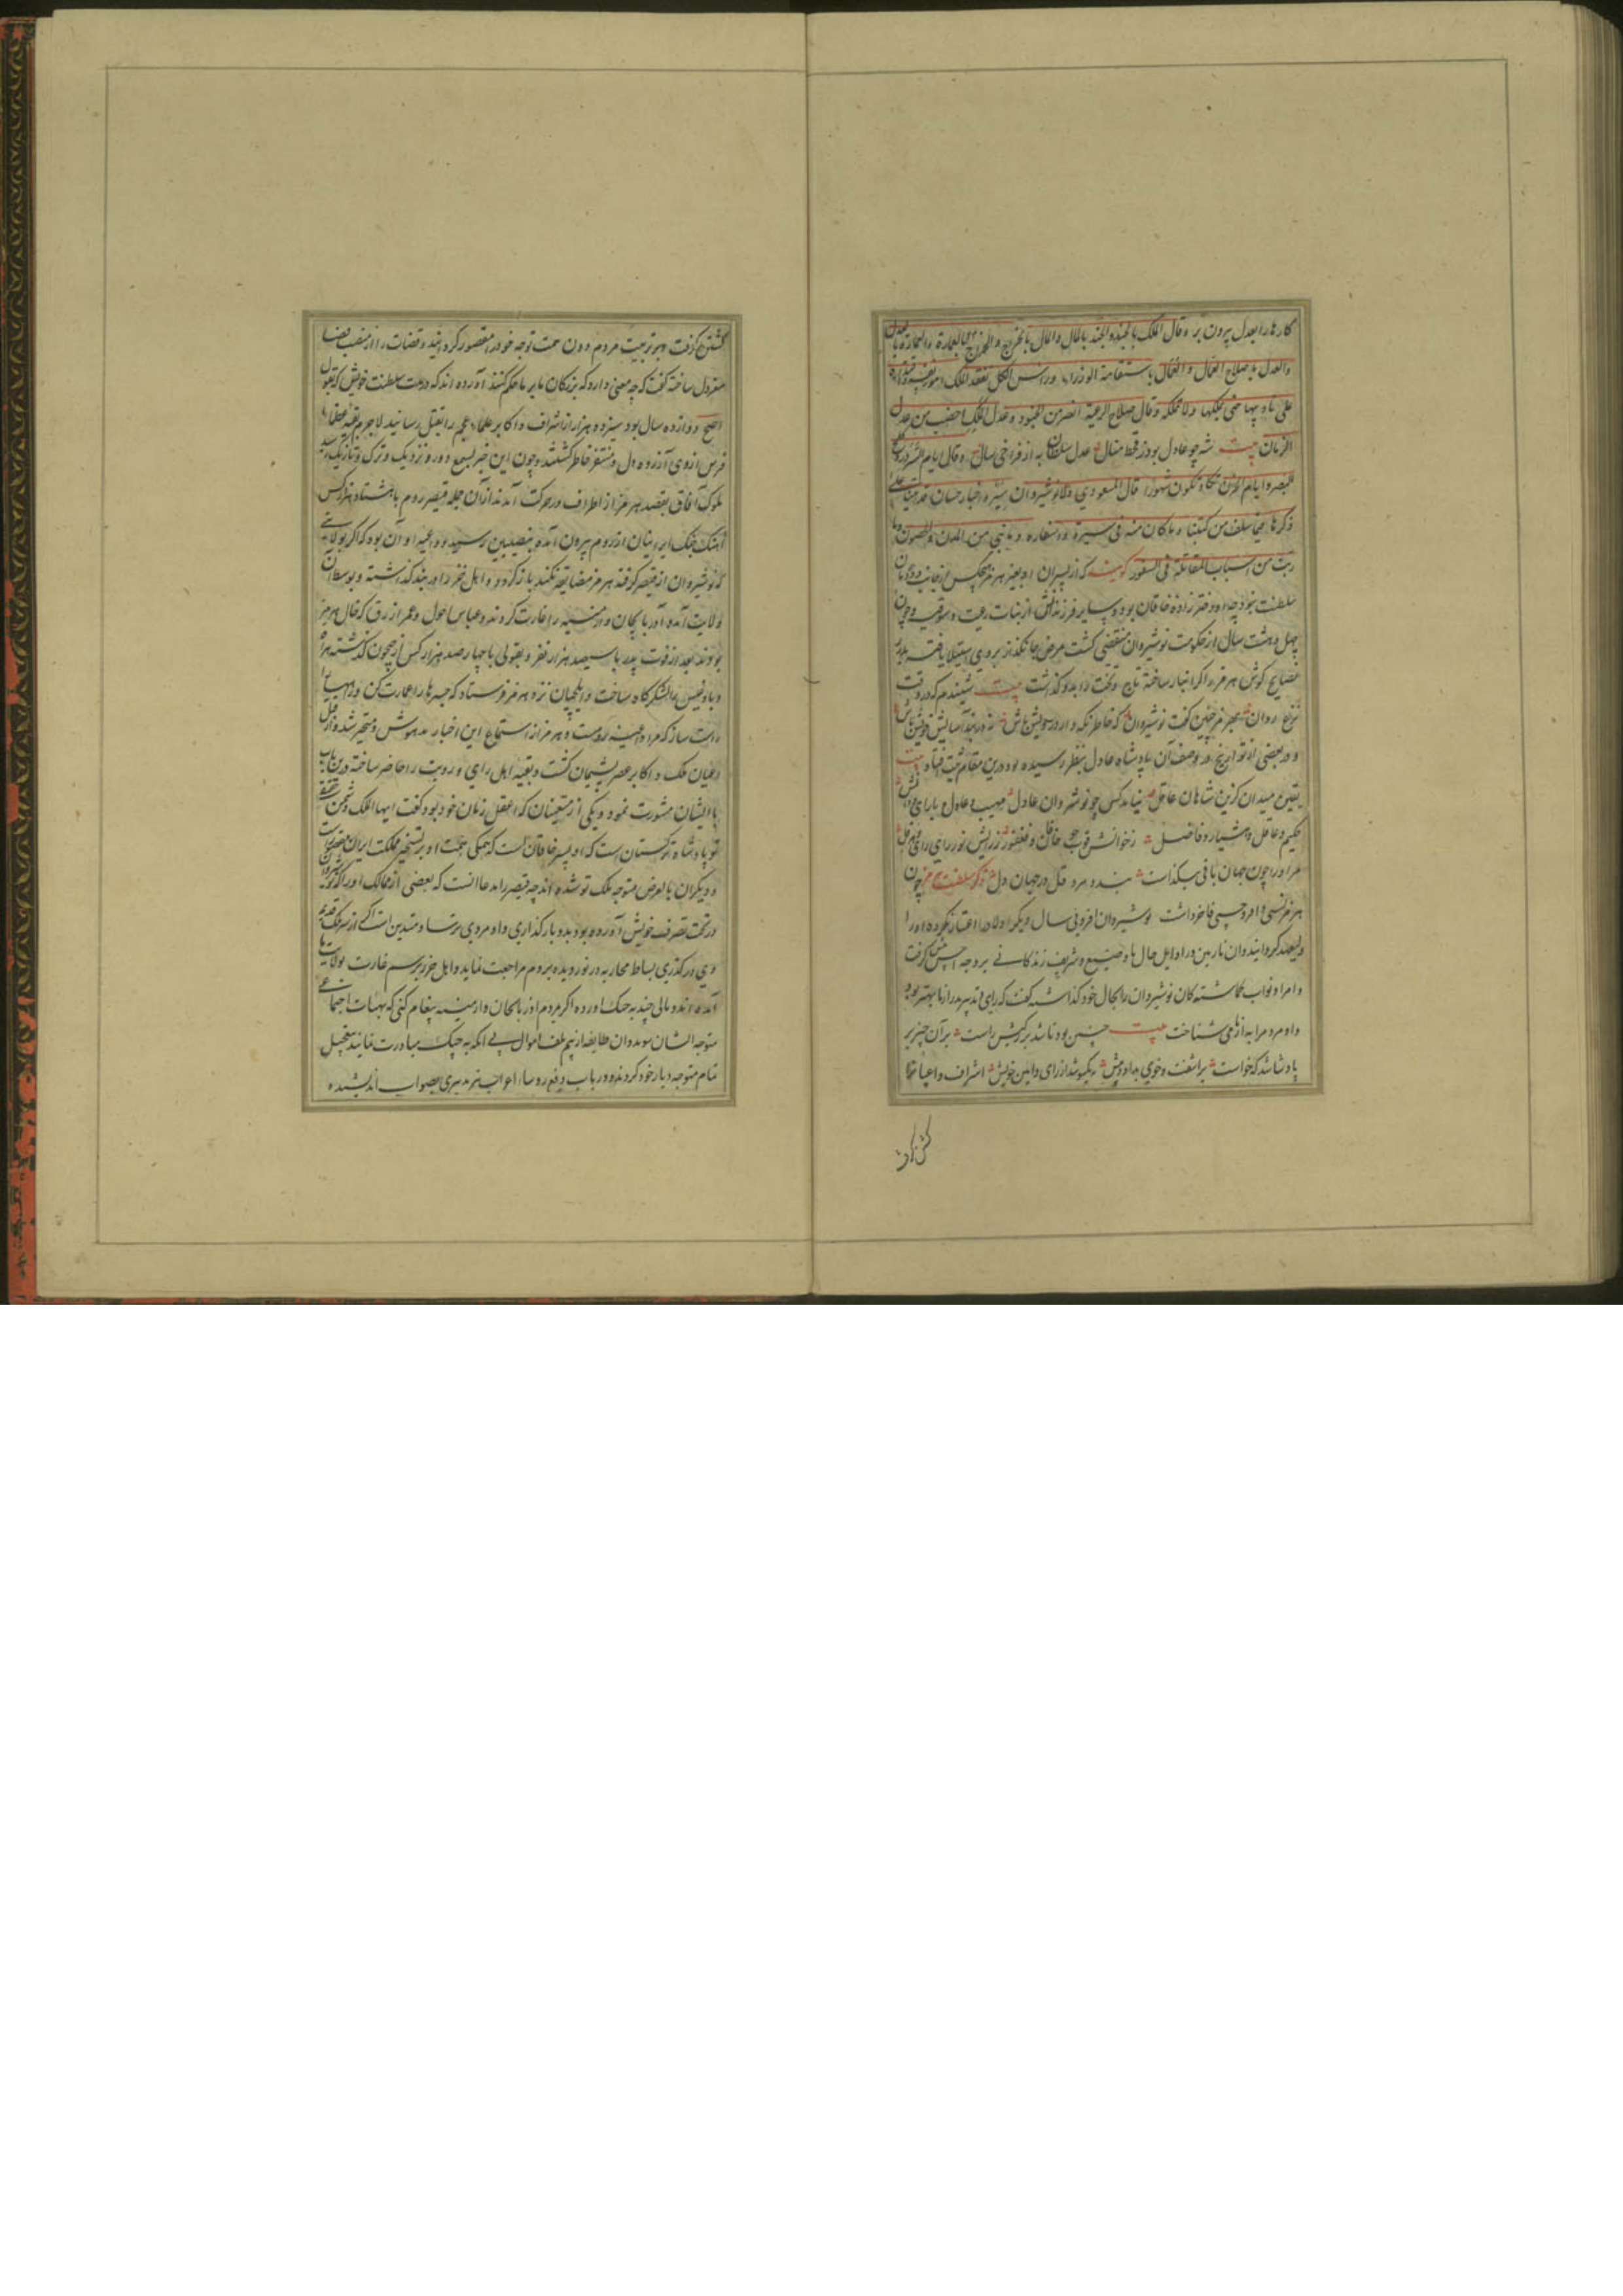 کارها را بعدل بیرون بر و قال الملک بالجند والجند بالمال والمال بالخراج والخراج بالعمارة والعمارة بالعدل
والعدل باصلاح العمال والعمال باستقامة الوزراء وراس الکل تفقد الملک امور نفسه
علی تادیبها حتی یملکها ولا تملکه وقال صلاح الرعیة انصر من الجنود وعدل الملک اخصب من عدل
الزمان بیت شه چو عادل بود ز قحط منال عدل سلطان به از فراخی سال وقال ایام السرور
کلمح البصر وایام الحزن تکاد تکون شهورا قال المسعودی ولانوشیروان سیر و اخبار حسان قد اتینا علی
ذکرها فیما سلف من کتبنا وما کان منه فی مسیره واسفاره وما بنی من المدن والحصون وما
رتب من اسباب المقاتلة فی الثغور گویند که از پسران او بغیر هرمز هیچکس از جانب
سلطنت نبود چه او دختر زاده خاقان بود و سایر فرزندانش از بنات رعیت و سوقه و چون
چهل و هشت سال از حکومت نوشیروان منقضی گشت مرض جانگداز بر وی استیلا یافته
نصایح گوش هرمز را گرانبار ساخته تاج و تخت را بدو گذاشت بیت شنیدم که در وقت
نزع روان بهرمز چنین گفت نوشیروان که خاطر نگه دار درویش باش نه در بند آسایش خویش باش
و در بعضی از تواریخ در وصف آن پادشاه عادل بنظر رسیده بود درین مقام ثبت افتاد
یقین میدان کزین شاهان عاقل نیامد کس چو نوشروان عادل مهیب و عادل و با رای و دانش
حکیم و عامل و هشیار و فاضل
مر او را چون جهان باقی بنگذاشت مرد دل در جهان دل ذکر سلطنت هرمز چون
هرمز نسبی وافر و حسبی فاخر داشت نوشیروان دیگر اولاد را اعتبار نکرده او را
ولیعهد گردانید و آن نازنین در اوایل حال با وضیع و شریف زندگانی بر وجه احسن پیش گرفت
و امرا و نواب گماشتگان نوشیروان را بحال خود گذاشته گفت که رای و تدبیر پدر از ما بهتر بود
و او مردم را به از ما می شناخت بیت
پادشا شد که خواست برآشفت و خوی بد آورد پیش بیکسو شد از رای و آیین خویش اشراف و اعیان را
کشتن گرفت
کشتن گرفت و بر تربیت مردم دون همت توجه خود را مقصور گردانید و قضات را از منصب قضا
معزول ساخته گفت که چه معنی دارد که بزرگان ما بر ما حکم کنند آورده اند که در مدت سلطنت خویش که بقول
اصح دوازده سال بود سیزده هزار از اشراف و اکابر علماء عجم را بقتل رسانید لاجرم بقیه عظماء
فرس از وی آزرده دل و متنفر خاطر گشتند و چون این خبر بسمع دور و نزدیک و ترک و تازیک رسید
ملوک آفاق بقصد هرمز از اطراف در حرکت آمدند از آن جمله قیصر روم با هشتاد هزار کس
آهنگ جنگ ایرانیان از روم بیرون آمده بنصیبین رسید و داعیه او آن بود که اگر بولایتی
که نوشیروان از قیصر گرفته هرمز مضایقه نکند باز گردد و اهل خزر دربند گذاشته و بوسط آن
ولایت آمده آذربایجان و ارمنیه را غارت کردند و عباس احول و عمرو ازرق که خال هرمز
بودند بعد از فوت پدر با سیصد هزار نفر و بقولی با چهار صد هزار کس از جیحون گذشته
و بادغیس را لشکرگاه ساخت و ایلچیان نزد هرمز فرستاد که جسرها را عمارت کن و راهها
راست ساز که مرا داعیه روم است و هرمز از استماع این اخبار مدهوش و متحیر شد و از قتل
اعیان ملک و اکابر عصر پشیمان گشت و بقیه اهل رای و رویت را حاضر ساخته درین باب
با ایشان مشورت نمود و یکی از متعینان که اعقل زمان خود بود گفت ایها الملک دشمن حقیقی
تو پادشاه ترکستان است که او پسر خاقان است که همگی همت او بر تسخیر مملکت ایران مقصور است
و دیگران بالعرض متوجه ملک تو شده اند چه قیصر را مدعا آنست که بعضی از ممالک او را که نوشیروان
در تحت تصرف خویش آورده بود بدو باز گذاری و او مردی ترسا و متدین است اگر از سر ملک قدیم
وی در گذری بساط محاربه در نوردیده بروم مراجعت نماید و اهل خزر برسم غارت بولایت ما
آمده اند و مالی چند به چنگ آورده اگر بمردم آذربایجان و ارمینیه پیغام کنی که بهیات اجتماعی
متوجه ایشان شوند آن طایفه از بیم تلف اموال بی آنکه به جنگ مبادرت نمایند بتعجیل
تمام متوجه دیار خود گردند و در باب دفع روسای اعراب نیز تدبیری بصواب اندیشیده